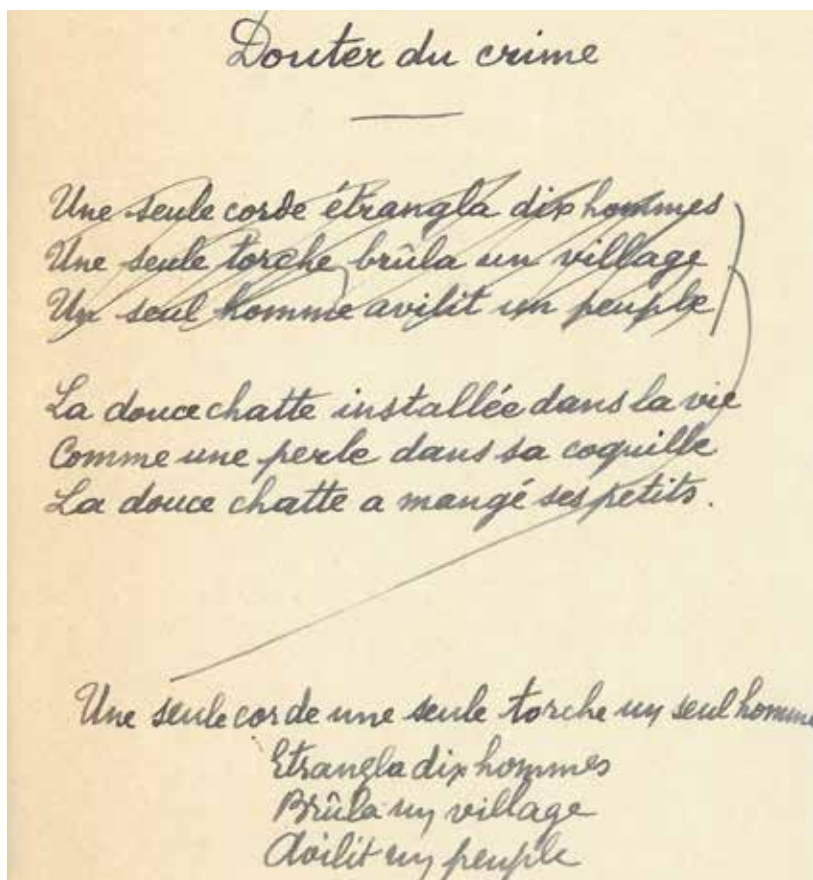 Douter du crime
Une seule corde étrangla dix hommes
Une seule torche brûla un village
Un seul homme avilit un peuple
La douce chatte installée dans la vie
Comme une perle dans sa coquille
La douce chatte a mangé ses petits.
Une seule corde une seule torche un seul homme
Etrangla dix hommes
Brûla un village
Avilit un peuple